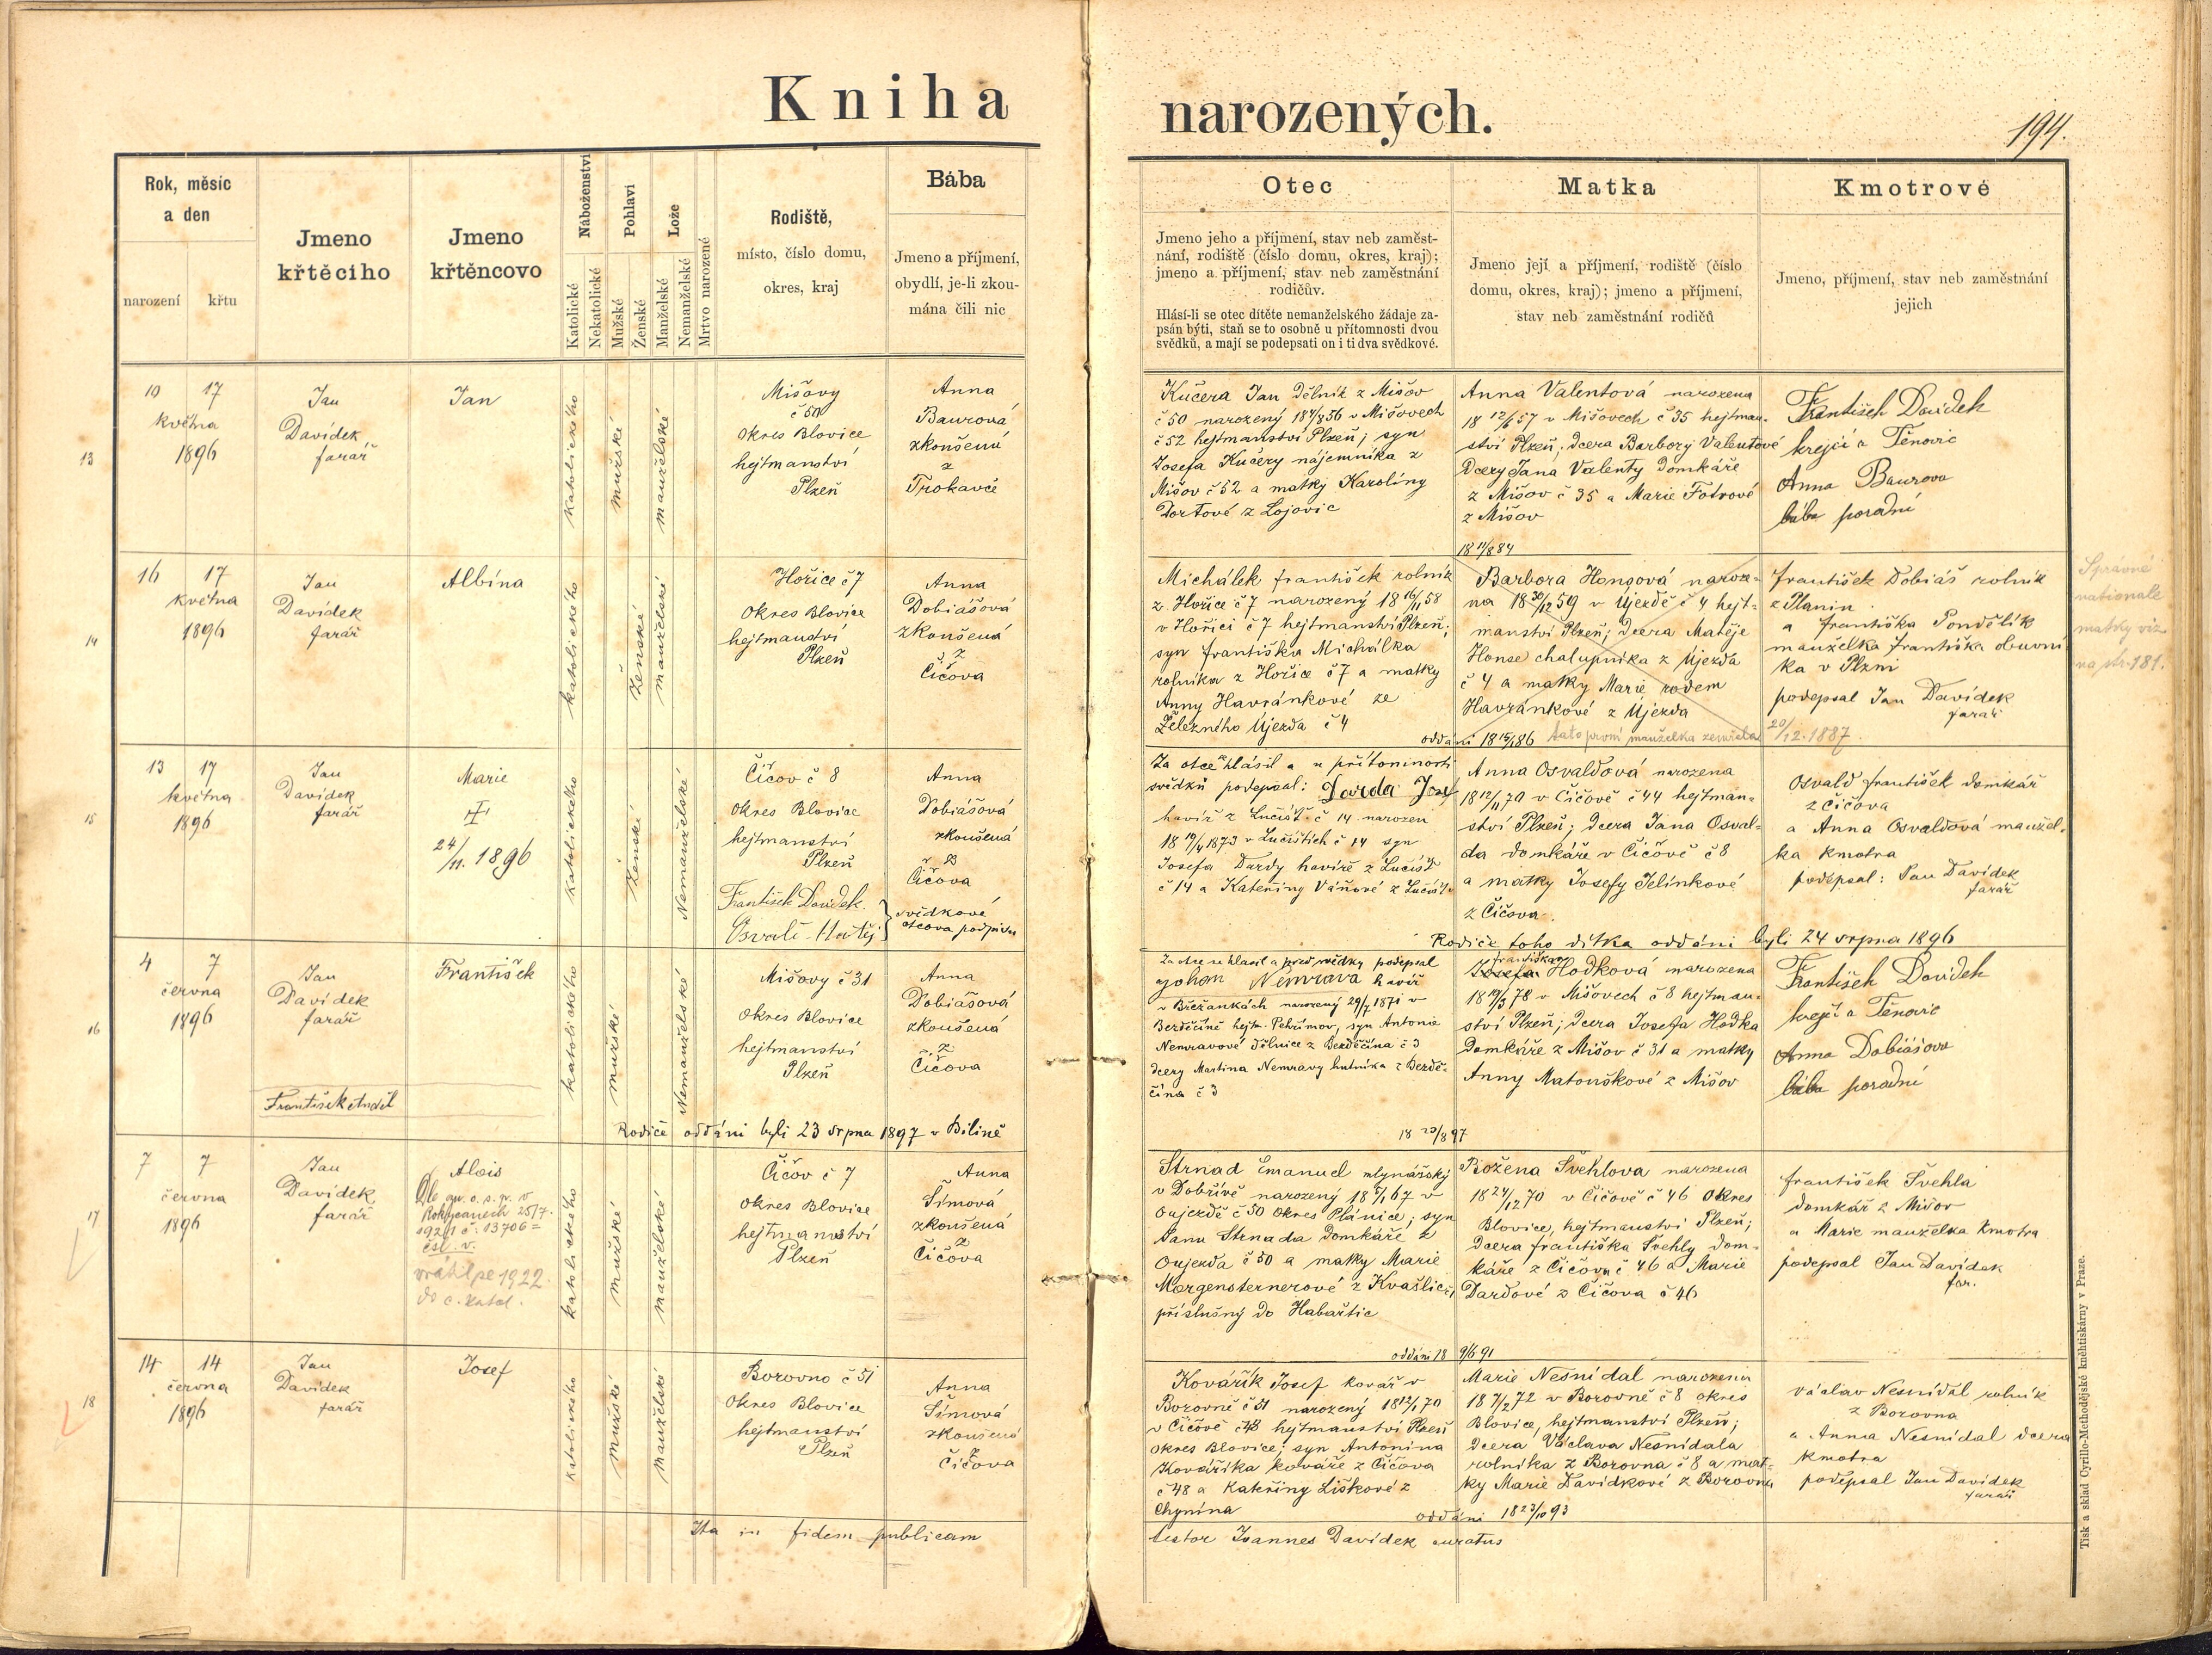 Kniha narozených.
194.
Rok, měsíc
a den
narození
křtu
Jmeno
křtěcího
Jmeno
křtěncovo
Náboženství
Katolické
Nekatolické
Pohlaví
Mužské
Ženské
Lože
Manželské
Nemanželské
Mrtvo narozené
Rodiště,
místo, číslo domu,
okres, kraj
Bába
Jmeno a příjmení,
obydlí, je-li zkou-
mána čili nic
Otec
Jmeno jeho a příjmení, stav neb zaměst-
nání, rodiště (číslo domu, okres, kraj);
jmeno a příjmení, stav neb zaměstnání
rodičův.
Hlásí-li se otec dítěte nemanželského žádaje za-
psán býti, staň se to osobně u přítomnosti dvou
svědků, a mají se podepsati on i ti dva svědkové.
Matka
Jmeno její a příjmení, rodiště (číslo
domu, okres, kraj); jmeno a příjmení,
stav neb zaměstnání rodičů
Kmotrové
Jmeno, příjmení, stav neb zaměstnání
jejich
13
10 17
května
1896
Jan
Davídek
farář
Jan
katolického
mužské
manželské
Mišovy
č 50
Okres Blovice
hejtmanství
Plzeň
Anna
Baurová
zkoušená
z
Trokavce
Kučera Jan dělník z Mišov
č 50 narozený 18 4/8 56 v Mišovech
č 52 hejtmanství Plzeň; syn
Josefa Kučery nájemníka z
Mišov č 52 a matky Karolíny
z Lojovic
Anna Valentová narozena
18 12/6 57 v Mišovech č 35 hejtman-
ství Plzeň; dcera Barbory Valentové
dcery Jana Valenty domkáře
z Mišov č 35 a Marie Fotrové
z Mišov
František Davídek
krejčí z Těnovic
Anna Baurova
bába porodní
18 11/8 84
14
16 17
května
1896
Jan
Davídek
farář
Albína
katolického
Ženské
manželské
Hořice č 7
Okres Blovice
hejtmanství
Plzeň
Anna
Dobiášová
zkoušená
z
Čičova
Michálek František rolník
z Hořice č 7 narozený 18 16/11 58
v Hořici č 7 hejtmanství Plzeň;
syn Františka Michálka
rolníka z Hořice č 7 a matky
Anny Havránkové ze
Železného Újezda č 4
Barbora Honsová naroze-
na 18 30/12 59 v Újezdě č 4 hejt-
manství Plzeň; dcera Matěje
Honse chalupníka z Újezda
č 4 a matky Marie rodem
Havránkové z Újezda
František Dobiáš rolník
z Planin
a Františka Pondělík
manželka Františka obuvní
ka v Plzni
podepsal Jan Davídek
farář
Správné
nationale
matky viz
na str. 181.
oddáni 18 15/1 86 tato první manželka zemřela 20/12. 1887.
15
13 17
května
1896
Jan
Davídek
farář
Marie
24/11. 1896
katolického
Ženské
Nemanželské
Čičov č 8
Okres Blovice
hejtmanství
Plzeň
František Davídek
Osvald Matěj
svědkové
otcova podpisu
Anna
Dobiášová
zkoušená
z
Čičova
Za otce hlásil a u přítomnosti
svědků podepsal: Darda Josef
havíř z Lučišť č 14 narozen
18 19/4 1873 v Lučištích č 14 syn
Josefa Dardy havíře z Lučišť
č 14 a Kateřiny Váňové z Lučišť
Anna Osvaldová narozena
18 12/11 70 v Čičově č 44 hejtman-
ství Plzeň; dcera Jana Osval-
da domkáře v Čičově č 8
a matky Josefy Jelínkové
z Čičova.
Osvald František domkář
z Čičova
a Anna Osvaldová manžel-
ka kmotra
podepsal: Jan Davídek
farář
Rodiče toho dítka oddáni byli 24 srpna 1896
16
4 7
června
1896
Jan
Davídek
farář
František Anděl
František
katolického
mužské
Nemanželské
Mišovy č 31
Okres Blovice
hejtmanství
Plzeň
Anna
Dobiášová
zkoušená
z
Čičova
Za otce se hlásil a před svědky podepsal
Johan Nemrava havíř
v Břežánkách narozený 29/7 1871 v
Bezděčíně hejtm. Pelhřimov, syn Antonie
Nemravové dělnice z Bezděčína č 3
dcery Martina Nemravy hutníka z Bezdě-
čína č 3
Františka
Josefa Hodková narozena
18 19/3 78 v Mišovech č 8 hejtman-
ství Plzeň; dcera Josefa Hodka
domkáře z Mišov č 31 a matky
Anny Matouškové z Mišov
František Davídek
krejčí z Těnovic
Anna Dobiášova
bába porodní
Rodiče oddáni byli 23 srpna 1897 v Bílině
18 23/8 97
17
7 7
června
1896
Jan
Davídek
farář
Alois
Rokycanech 25/7.
1921 č. 13706 =
čsl. v.
vrátil se 1922
do c. katol.
katolického
mužské
manželské
Čičov č 7
Okres Blovice
hejtmanství
Plzeň
Anna
Šímová
zkoušená
z
Čičova
Strnad Emanuel mlynářský
v Dobřívě narozený 18 5/1 67 v
Oujezdě č 50 Okres Plánice; syn
Jana Strnada domkáře z
Oujezda č 50 a matky Marie
Morgensternerové z Kvašlic;
příslušný do Habartic
Božena Švehlova narozena
18 24/12 70 v Čičově č 46 Okres
Blovice, hejtmanství Plzeň;
dcera Františka Švehly dom-
káře z Čičova č 46 a Marie
Dardové z Čičova č 46
František Švehla
domkář z Mišov
a Marie manželka kmotra
podepsal Jan Davídek
far.
oddáni 18 9/6 91
18
14 14
června
1896
Jan
Davídek
farář
Josef
katolického
mužské
manželské
Borovno č 51
Okres Blovice
hejtmanství
Plzeň
Anna
Šímová
zkoušená
z
Čičova
Kovářík Josef kovář v
Borovně č 51 narozený 18 12/1 70
v Čičově č 48 hejtmanství Plzeň
okres Blovice; syn Antonína
Kováříka kováře z Čičova
č 48 a Kateřiny Liškové z
Chynína
Marie Nesnídal narozena
18 7/2 72 v Borovně č 8 okres
Blovice, hejtmanství Plzeň;
dcera Václava Nesnídala
rolníka z Borovna č 8 a mat-
ky Marie Davídkové z Borovna
Václav Nesnídal rolník
z Borovna
a Anna Nesnídal dcera
kmotra
podepsal Jan Davídek
farář
oddáni 18 23/10 93
Ita in fidem publicam
testor Joannes Davídek curatus
Tisk a sklad Cyrillo-Methodějské knihtiskárny v Praze.